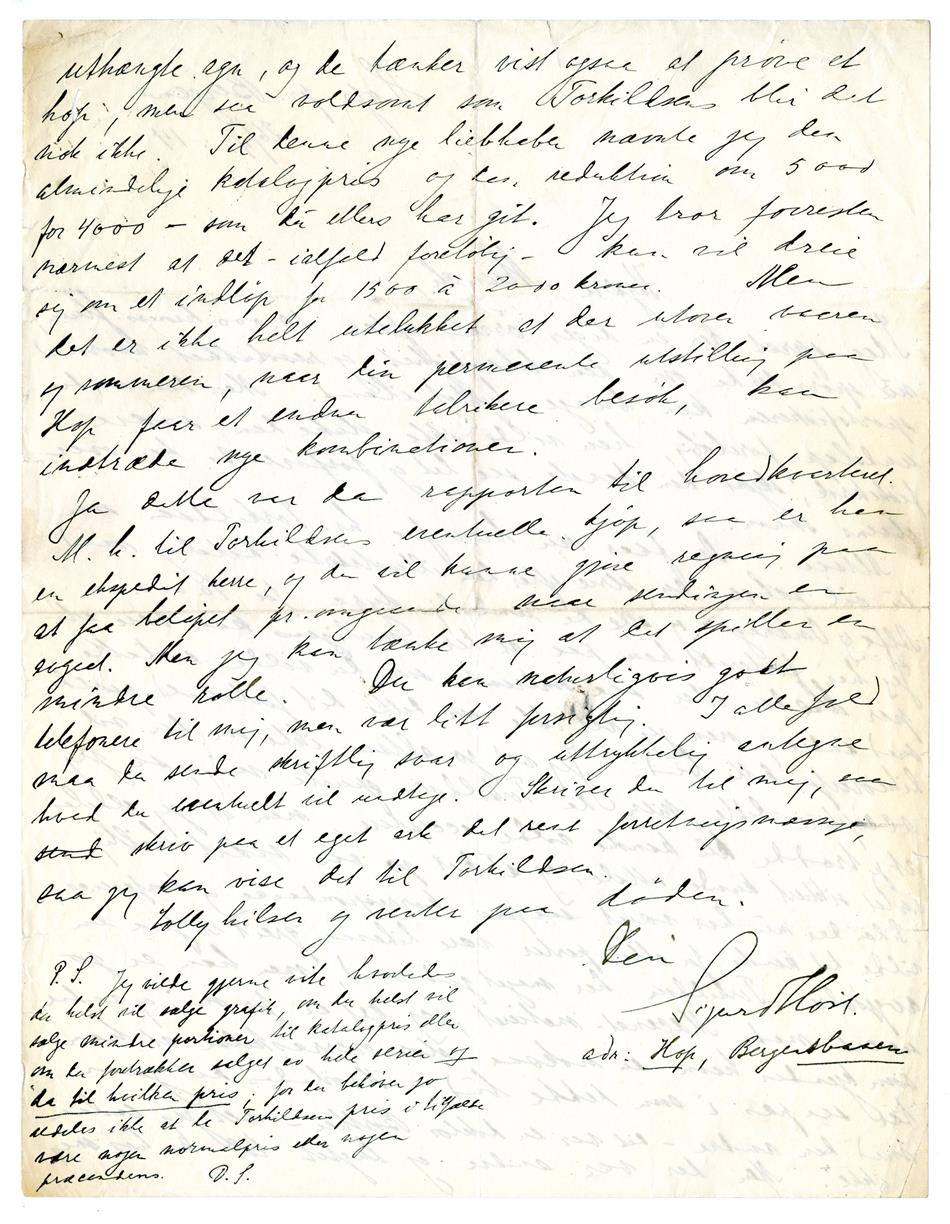 uthængte agn, og de tænker vist ogsaa at prøve et
hop, men saa voldsomt som Torkildsens blir det
nok ikke. Til denne nye liebhaber nævnte jeg den
almindelige katalogpris og en reduktion om 5000
for 4000 – som du ellers har git. Jeg tror forresten
nærmest at det – ialfald foreløbig – kun vil dreie
sig om et indkjøp for 1500 à 2000 kroner. Men
det er ikke helt utelukket at der utover vaaren
og sommeren, naar din permanente utstilling paa
Hop faar et endnu talrikere besøk, kan
indtræde nye kombinationer.
Ja dette var da rapporten til hovedkvarteret.
M. h. til Torkildsens eventuelle kjøp, saa er han
en ekspedit herre, og du vil kunne gjøre regning paa
at faa beløpet pr. omgaaende naar sendingen er
avgaat. Men jeg kan tænke mig at det spiller en
mindre rolle. Du kan naturligvis godt
telefonere til mig, men vær litt forsigtig. I alle fald
maa du sende skriftlig svar og uttrykkelig antegne
hvad du eventuelt vil undtage. Skriver du til mig, saa
send skriv paa et eget ark det rent forretningsmæssige,
saa jeg kan vise det til Torkildsen.
Tolly hilser og venter paa døden.
Din
Sigurd Høst.
adr: Hop, Bergensbanen
P.S. Jeg vilde gjerne vite hvorledes
du helst vil sælge grafik, om du helst vil
sælge mindre portioner til katalogpris eller
om du foretrækker salget av hele serier og
da til hvilken pris; for der behøver jo
aldeles ikke at bli Torkildsens pris i tilfælde
være nogen normalpris eller nogen
præcedens. D.S.